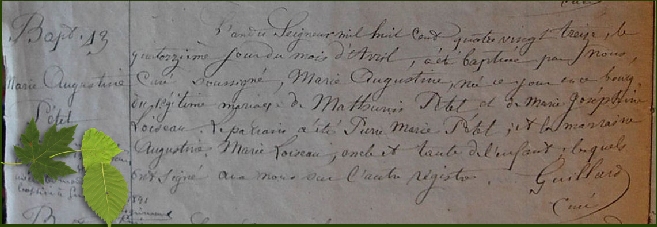 Bapt. 13
Marie Augustine
Petit
L'an du Seigneur mil huit cent quatre vingt treize, le
quatorzième jour du mois d'Avril, a été baptisée par nous,
Curé soussigné, Marie Augustine, née ce jour en ce bourg
en légitime mariage de Mathurin Petit et de Marie Joséphine
Loiseau. Le parrain a été Pierre Marie Petit, et la marraine
Augustine Marie Loiseau, oncle et tante de l'enfant, lesquels
ont signé avec nous sur l'autre registre. Guillard
Curé